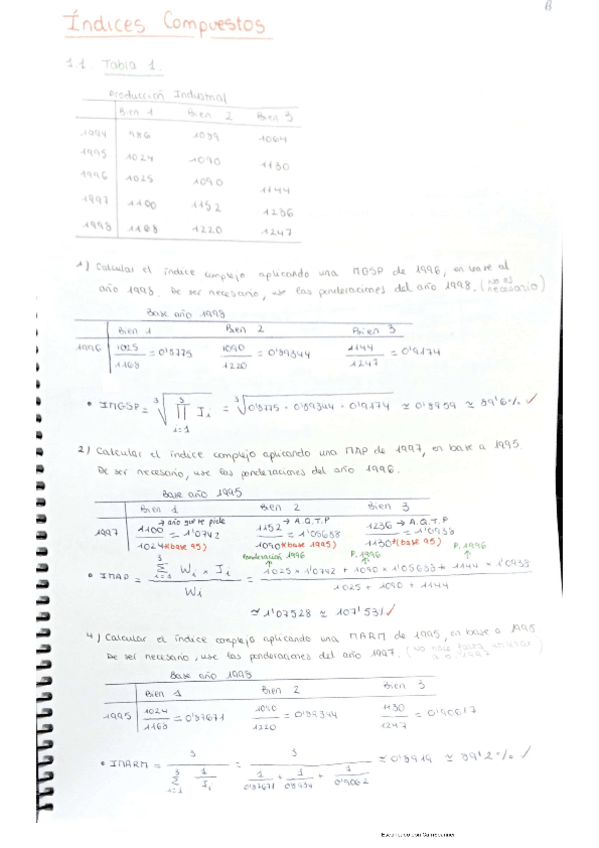 B
Índices Compuestos
1.1. Tabla 1.
Producción Industrial
Bien 1 Bien 2 Bien 3
1994 986 1039 1064
1995 1024 1090 1130
1996 1025 1090 1144
1997 1100 1152 1236
1998 1168 1220 1247
1) Calcular el índice complejo aplicando una MGSP de 1996, en base al
año 1998. De ser necesario, use las ponderaciones del año 1998. (no es necesario)
Base año 1998
Bien 1 Bien 2 Bien 3
1996 1025/1168 = 0'8775 1090/1220 = 0'89344 1144/1247 = 0'9174
• IMGSP = ³√∏ Ii = ³√0'8775 · 0'89344 · 0'9174 ≃ 0'8959 ≃ 89'6% ✓
2) Calcular el índice complejo aplicando una MAP de 1997, en base a 1995.
De ser necesario, use las ponderaciones del año 1996.
Base año 1995
Bien 1 Bien 2 Bien 3
→ año que te pide → A.Q.T.P → A.Q.T.P
1997 1100/1024 = 1'0742 1152/1090 = 1'05688 1236/1130 = 1'0938
*(base 95) *(base 1995) *(base 95)
ponderación 1996 P. 1996 P. 1996
• IMAP = Σ Wi × Ii / Wi = 1025 × 1'0742 + 1090 × 1'05688 + 1144 × 1'0938 / 1025 + 1090 + 1144
≃ 1'07528 ≃ 107'53% ✓
4) Calcular el índice complejo aplicando una MARM de 1995, en base a 1995
De ser necesario, use las ponderaciones del año 1997. (No hace falta
Base año 1998
Bien 1 Bien 2 Bien 3
1995 1024/1168 = 0'87671 1090/1220 = 0'89344 1130/1247 = 0'90617
• IMARM = 3 / Σ 1/Ii = 3 / 1/0'87671 + 1/0'8934 + 1/0'9062 ≃ 0'8919 ≃ 89'2% ✓
Escaneado con CamScanner